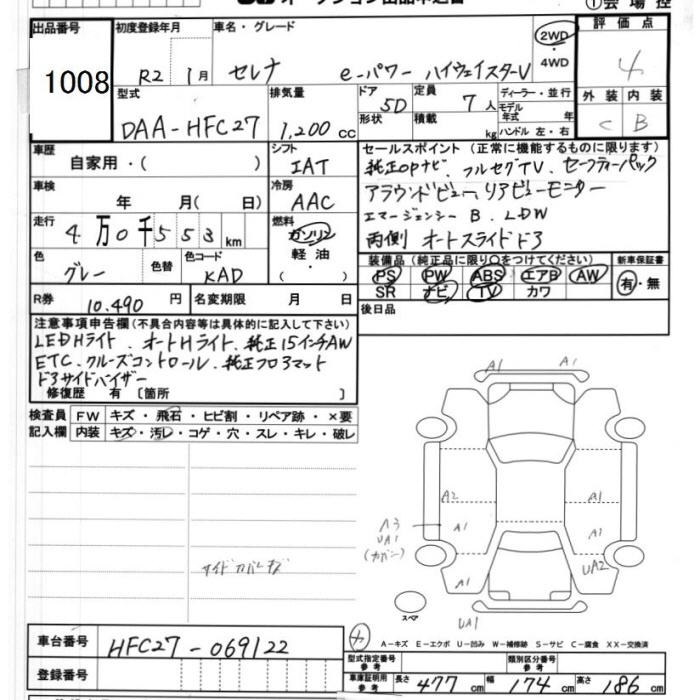 オークション出品申込書
①会場控
出品番号 初度登録年月 車名・グレード 評価点
1008 R2年1月 セレナ e-パワー ハイウェイスターV 2WD・4WD 4
型式 排気量 ドア 定員 ディーラー・並行 外装 内装
DAA-HFC27 1,200cc 5D 7人 モデル年式 年 C B
形状 積載 kg ハンドル 左・右
車歴 シフト セールスポイント(正常に機能するものに限ります)
自家用・( ) IAT 純正OPナビ、フルセグTV、セーフティーパック
車検 冷房 アラウンドビュー、リアビューモニター
年 月( 日) AAC エマージェンシーB、LDW
走行 燃料 両側オートスライドドア
4万0千553km ガソリン
軽油
( )
色 色替 色コード 装備品(純正品に限り○をつけてください) 新車保証書
グレー KAD PS PW ABS エアB AW 有・無
SR ナビ TV カワ
R券 10,490円 名変期限 月 日 後日品
注意事項申告欄(不具合内容等は具体的に記入して下さい)
LEDHライト、オートHライト、純正15インチAW
ETC、クルーズコントロール、純正フロアマット
ドアサイドバイザー
修復歴 有[箇所 ]
検査員 FW キズ・飛石・ヒビ割・リペア跡・×要
記入欄 内装 キズ・汚レ・コゲ・穴・スレ・キレ・破レ
A1 A1
A2 A1
A3 A1 A1
UA1
(カバン)
A1 UA2
サイドカバーキズ
スペア
UA1
車台番号 HFC27-069122
A-キズ E-エクボ U-凹み W-補修跡 S-サビ C-腐食 XX-交換済
登録番号 型式指定番号 参考 類別区分番号 参考
車庫証明用 参考 長さ 477cm 幅 174cm 高さ 186cm